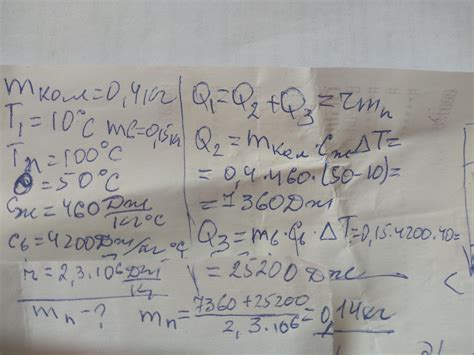 mкал=0,4кг
T₁=10°C mв=0,15кг
Tп=100°C
θ=50°C
Cж=460 Дж/кг°C
Cв=4200 Дж/кг°C
r=2,3·10⁶ Дж/кг
mп-?
Q₁=Q₂+Q₃=rmп
Q₂=mкал·Cж ΔT=
=0,4·460·(50-10)=
=7360Дж
Q₃=mв·Cв·ΔT=0,15·4200·40=
=25200Дж
mп=7360+25200/2,3·10⁶=0,14кг